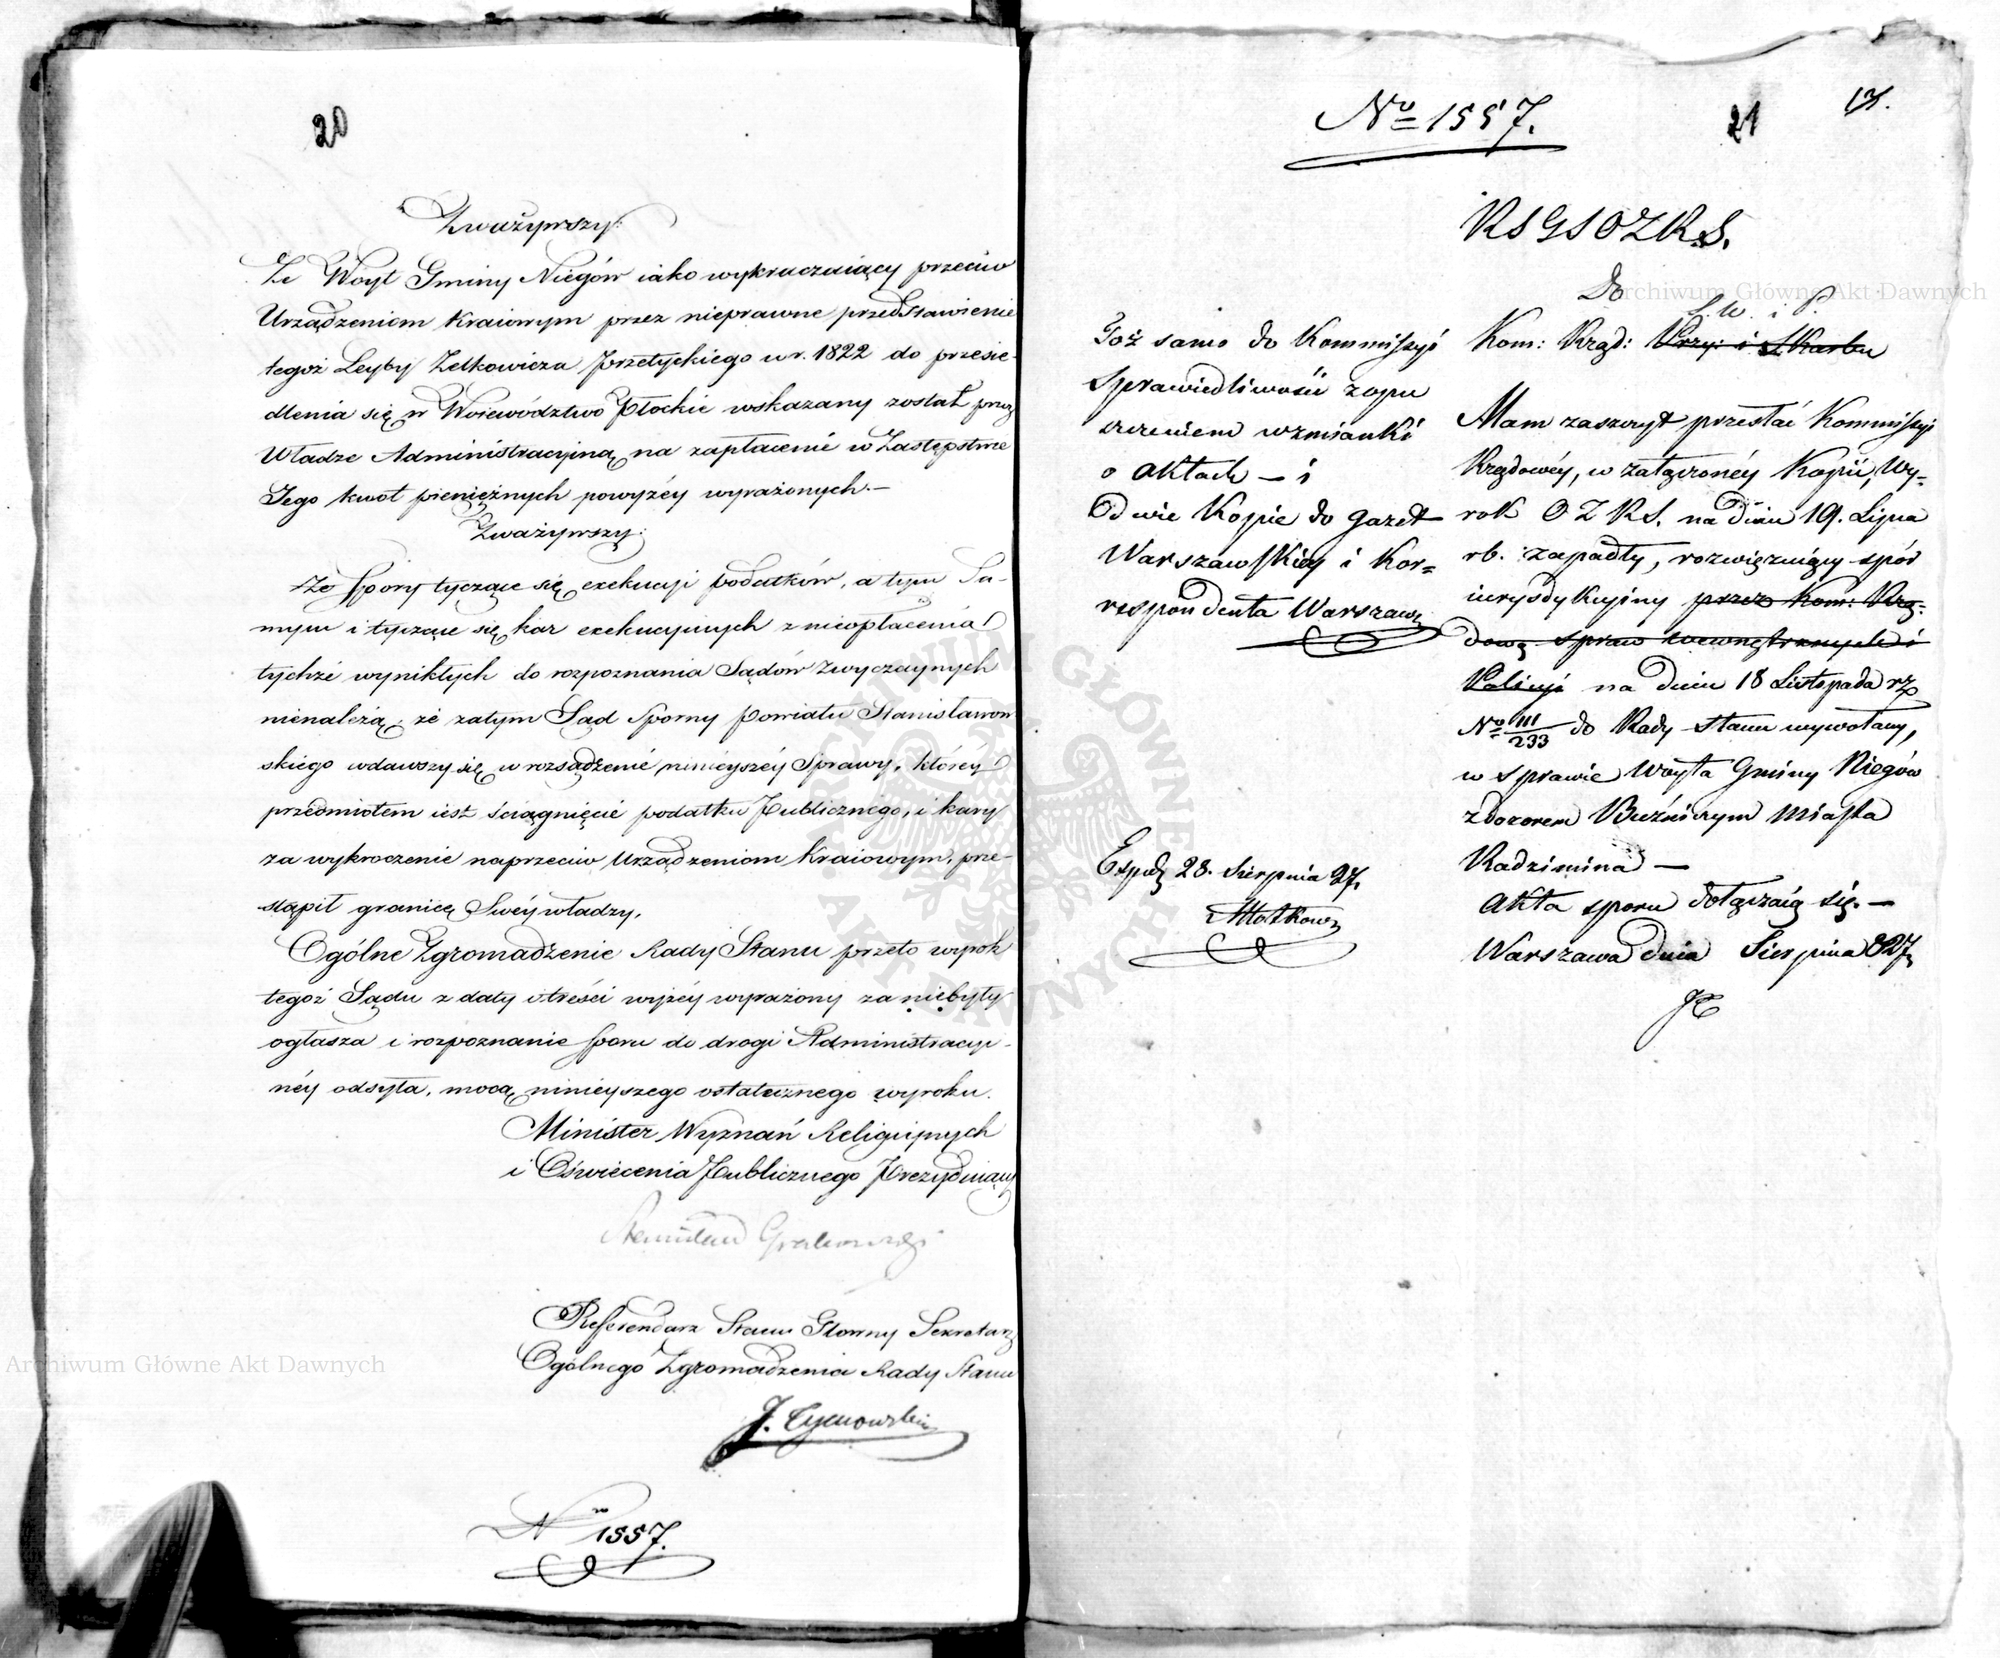 20
Zważywszy:
Że Woyt Gminy Niegów iako wykraczaiący przeciw
Urządzeniom Kraiowym przez nieprawne przedstawienie
tegoż Leyby Zelkowicza Przetyckiego w r. 1822 do przesie-
dlenia się w Woiewództwo Płockie wskazany został przez
Władze Administracyiną na zapłacenie w Zastępstwie
Jego kwot pieniężnych powyżéy wyrażonych.—
Zważywszy:
że spory tyczące się exekucyi podatków, a tym Sa-
mym i tyczące się kar exekucyinych z nieopłacenia
tychże wynikłych do rozpoznania Sądów Zwyczaynych
nienależą; że zatym Sąd Sporny Powiatu Stanisławow
skiego wdawszy się w rozsądzenie ninieyszéy Sprawy, któréy
przedmiotem iest ściągnięcie podatku Publicznego, i kary
za wykroczenie naprzeciw Urządzeniom Kraiowym, prze-
stąpił granicę Swéy władzy,
Ogólne Zgromadzenie Rady Stanu przeto wyrok
tegoż Sądu z daty i treści wyżéy wyrażony za niebyły
ogłasza i rozpoznanie sporu do drogi Administracyi-
néy odsyła, mocą ninieyszego ostatecznego wyroku.
Minister Wyznań Religiynych
i Oświecenia Publicznego Prezyduiący
Stanisław Grabowski
Referendarz Stanu Główny Sekretarz
Ogólnego Zgromadzenia Rady Stanu
J.
No 1557.
No 1557.
21
RSGSOZRS.
Do
S. W. i P.
Kom: Rząd: Przy: i Skarbu
Mam zaszczyt przesłać Kommissyi
Rządowéy, w załączonéy Kopii, Wy-
rok O Z R S. na dniu 19. Lipca
rb. zapadły, rozwiązuiący spór
iurysdykcyiny przez Kom: Rzą-
dową spraw wewnętrznych i
Policyi na dniu 18 Listopada rz
No 111/233 do Rady Stanu wywołany,
w sprawie Woyta Gminy Niegów
z dozorem Bużniczym Miasta
Radzimina —
Akta sporu dołączaią się. —
Warszawa dnia Sierpnia 827
Toż samo do Kommissyi
Sprawiedliwości z opu
szczeniem wzmianki
o aktach — i
Dwie Kopie do gazet
Warszawskiey i Kor=
respondenta Warszaw
Exped 28. Sierpnia 27.
Archiwum Główne Akt Dawnych
Archiwum Główne Akt Dawnych
ARCHIWUM GŁÓWNE AKT DAWNYCH